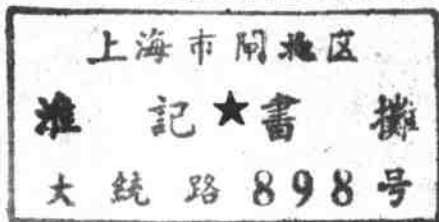 上海市閘北区
淮記★書攤
大統路898号